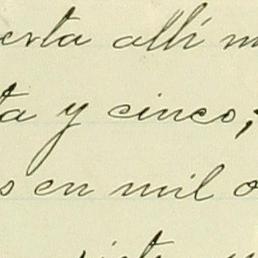 erta allí
ta y cinco;
s en mil o